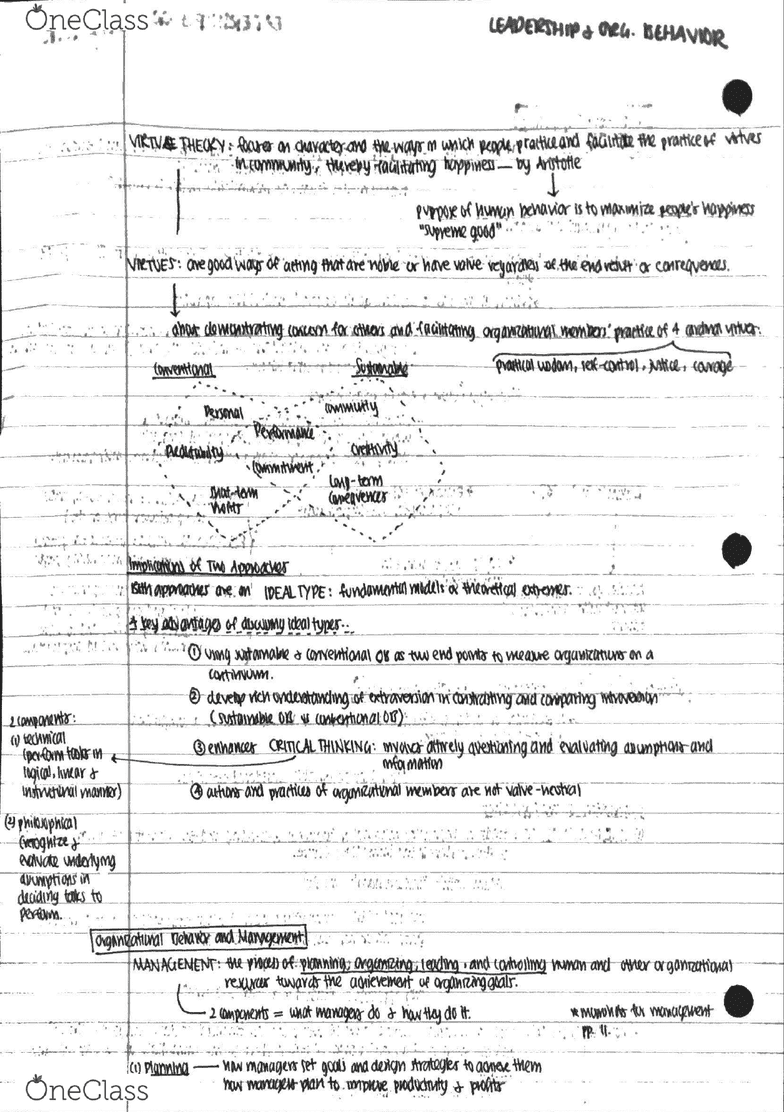 OneClass
LEADERSHIP & ORG. BEHAVIOR
VIRTUE THEORY: focuses on character and the ways in which people practice and facilitate the practice of virtues
in community, thereby facilitating happiness — by Aristotle
purpose of human behavior is to maximize people's happiness
"supreme good"
VIRTUES: are good ways of acting that are noble or have value regardless of the end result or consequences.
about demonstrating concern for others and facilitating organizational members' practice of 4 cardinal virtues:
practical wisdom, self-control, justice, courage
Conventional Sustainable
Personal community
Performance
Predictability creativity
commitment
short-term long-term
consequences
Implications of Two Approaches
Both approaches are an IDEAL TYPE: fundamental models or theoretical extremes.
4 key advantages of discussing ideal types..
① using sustainable & conventional OB as two end points to measure organizations on a
continuum.
② develop rich understanding of extraversion in contrasting and comparing introversion
(sustainable OB vs conventional OB)
③ enhances CRITICAL THINKING: involves actively questioning and evaluating assumptions and
information
④ actions and practices of organizational members are not value-neutral
2 components:
(1) technical
(perform tasks in
logical, linear &
instructional manner)
(2) philosophical
(recognize &
evaluate underlying
assumptions in
deciding tasks to
perform.
Organizational Behavior and Management
MANAGEMENT: the process of planning, organizing, leading, and controlling human and other organizational
resources towards the achievement of organizing goals.
2 components = what managers do & how they do it.
* for management
pp. 11.
(1) Planning — how managers set goals and design strategies to achieve them
how managers plan to improve productivity & profits
OneClass